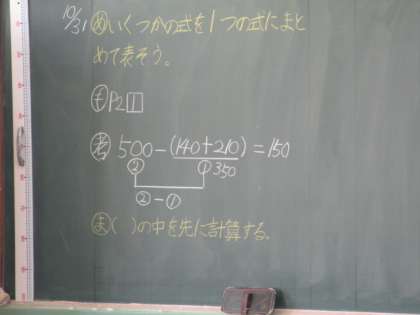 10/31 めいくつかの式を1つの式にまと
めて表そう。
も P2 1
考 500-(140+210)=150
② ① 350
②-①
よ ( )の中を先に計算する。